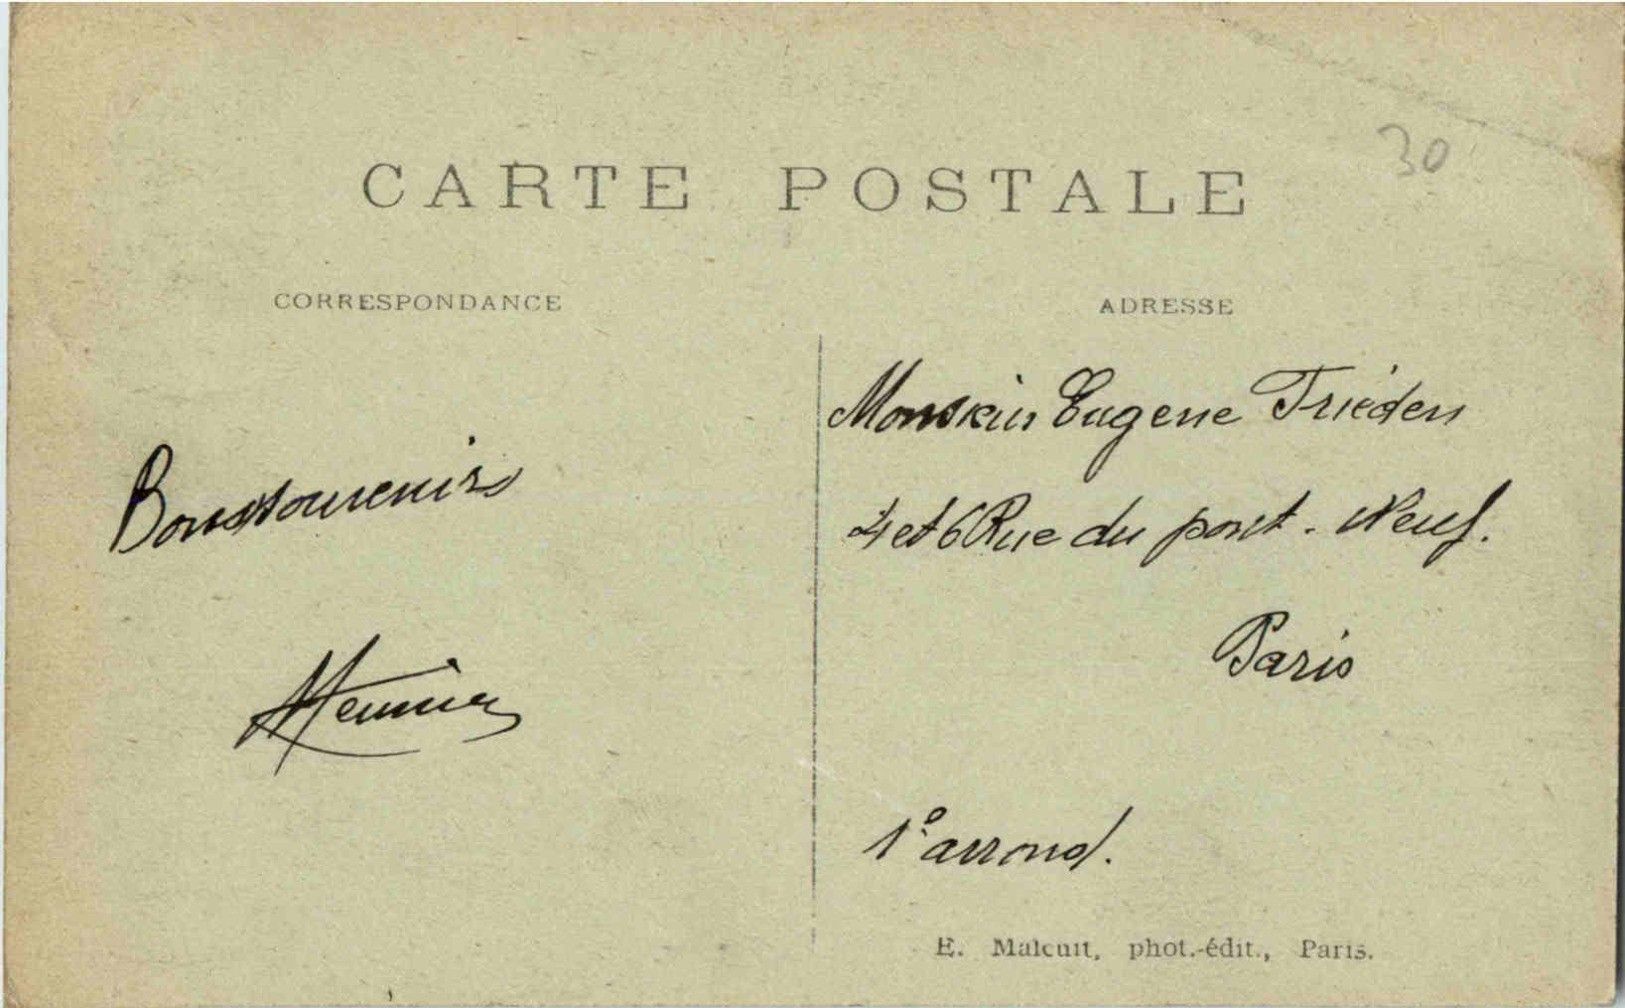 30
CARTE POSTALE
CORRESPONDANCE
ADRESSE
Bons souvenirs
Meunier
Monsieur Eugene Trieden
4 et 6 Rue du pont. Neuf.
Paris
1º arrond.
E. Malcuit, phot.-édit., Paris.